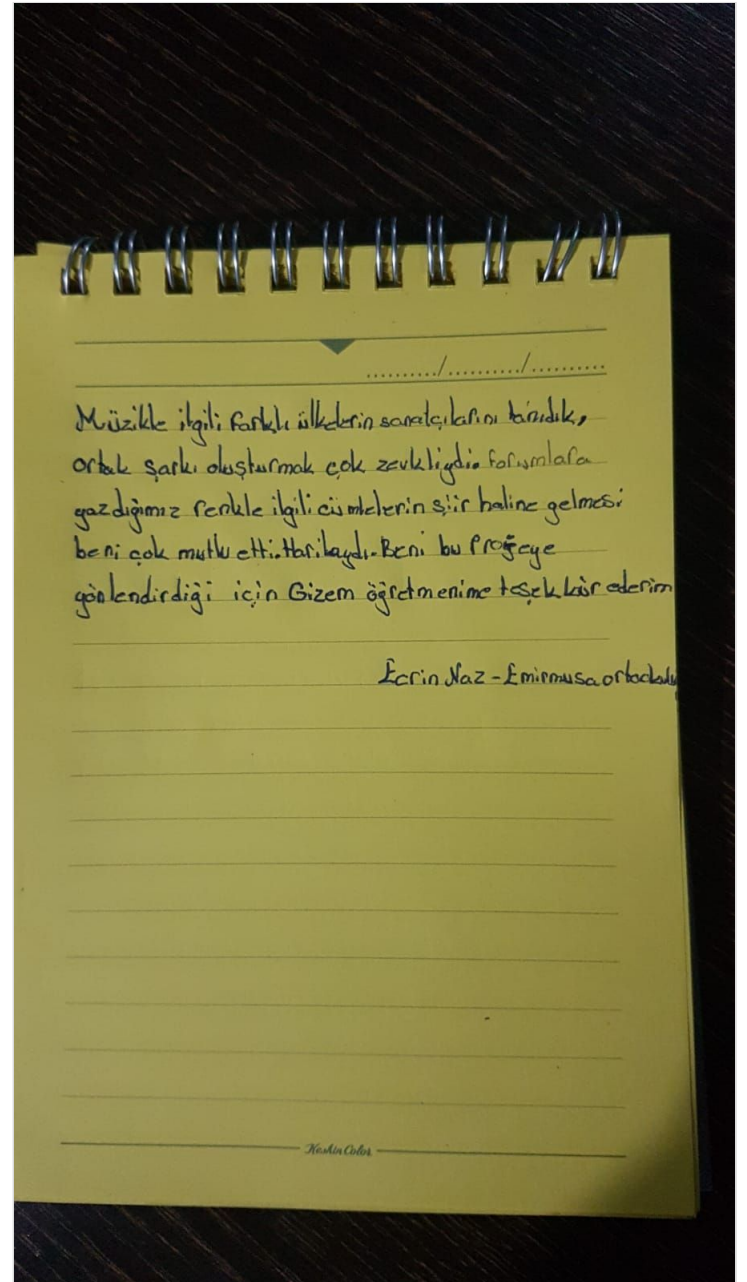 ........../........../..........
Müzikle ilgili farklı ülkelerin sanatçılarını tanıdık,
ortak şarkı oluşturmak çok zevkliydi. Forumlara
yazdığımız renkle ilgili cümlelerin şiir haline gelmesi
beni çok mutlu etti. Harikaydı. Beni bu Projeye
yönlendirdiği için Gizem öğretmenime teşekkür ederim
Ecrin Naz - Emirmusa ortaokulu
Keskin Color